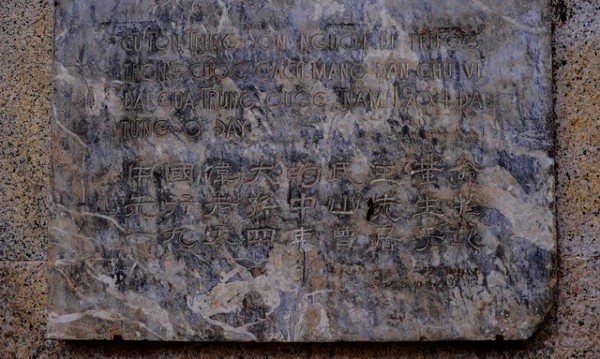 CỤ TÔN TRUNG SƠN, NGƯỜI ĐI TRƯỚC
TRONG CUỘC CÁCH MẠNG DÂN CHỦ VĨ
ĐẠI CỦA TRUNG QUỐC, NĂM 1904 ĐÃ
TỪNG Ở ĐÂY
中國偉大的民主革命
先行者孫中山先生於
一九〇四年曾居于此